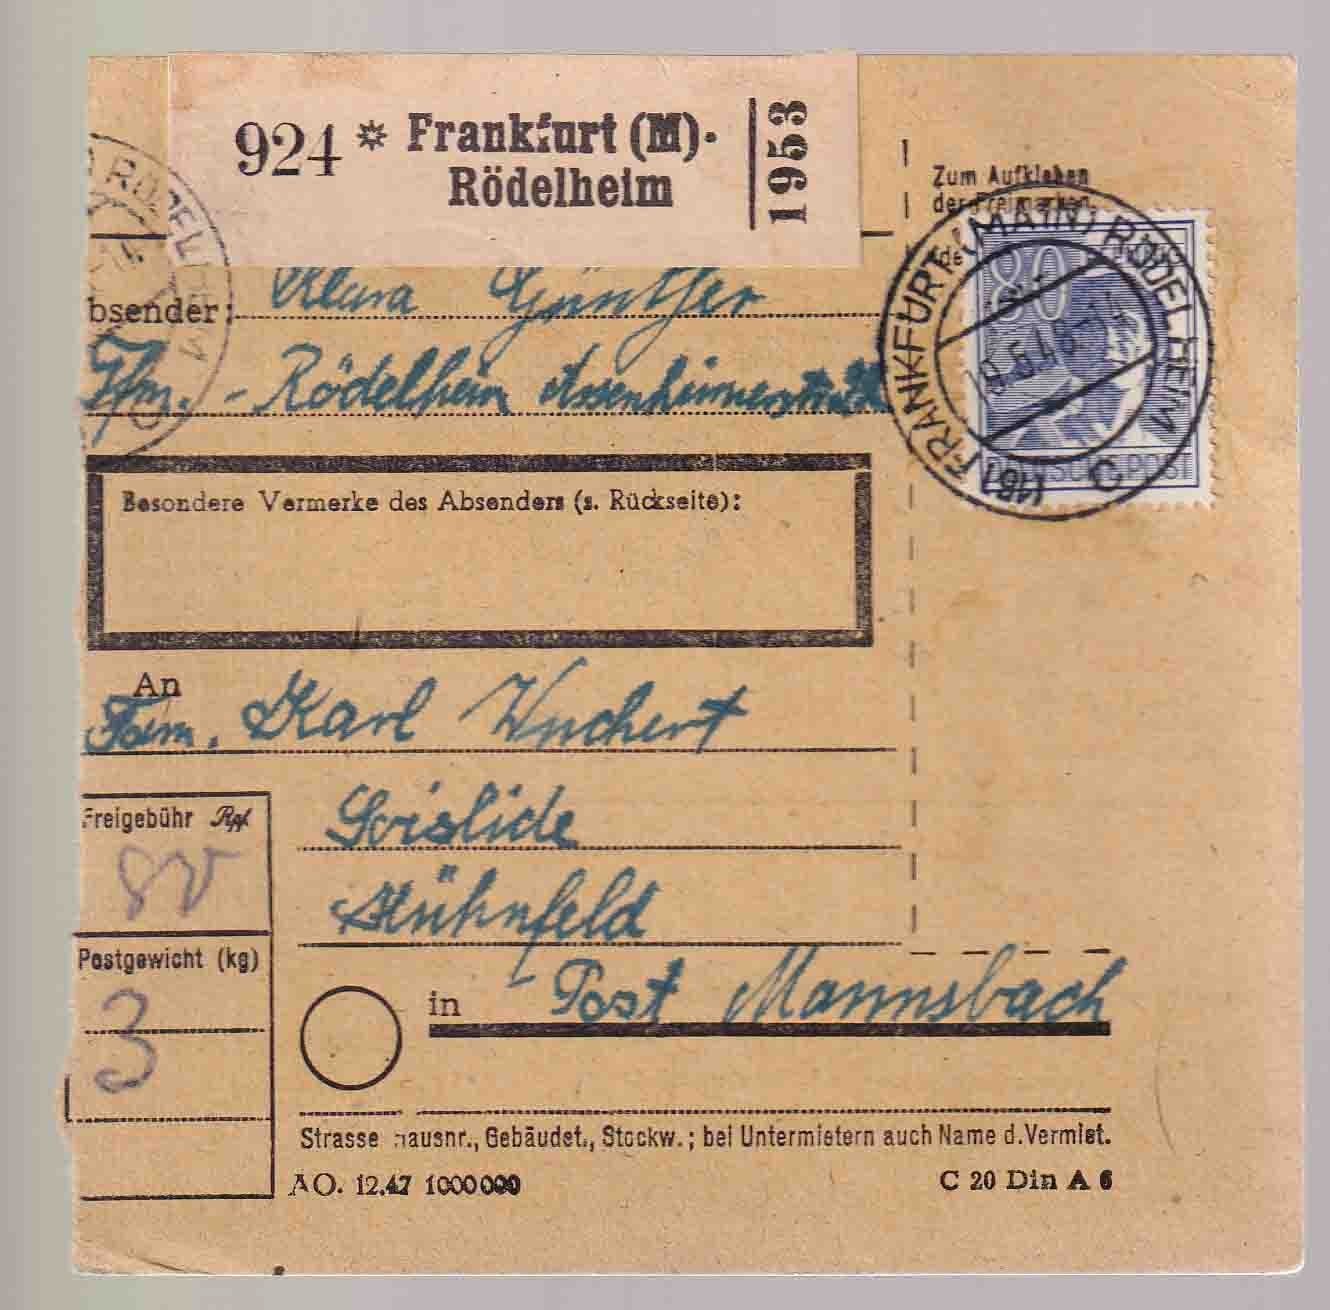 924 * Frankfurt (M).-
Rödelheim
1953
Zum Aufkleben
der Freimarken
80
DEUTSCHE POST
(16) FRANKFURT (MAIN) RÖDELHEIM
c
RÖDELHEIM
bsender: Klara Günther
Ffm. - Rödelheim
Besondere Vermerke des Absenders (s. Rückseite):
An
Fam. Karl Wuchert
Freigebühr Rpf.
80
Soislide
Hühnfeld
Postgewicht (kg)
3
in Post Mannsbach
Strasse Hausnr., Gebäudet., Stockw.; bei Untermietern auch Name d. Vermiet.
AO. 12.47 1000000
C 20 Din A 6